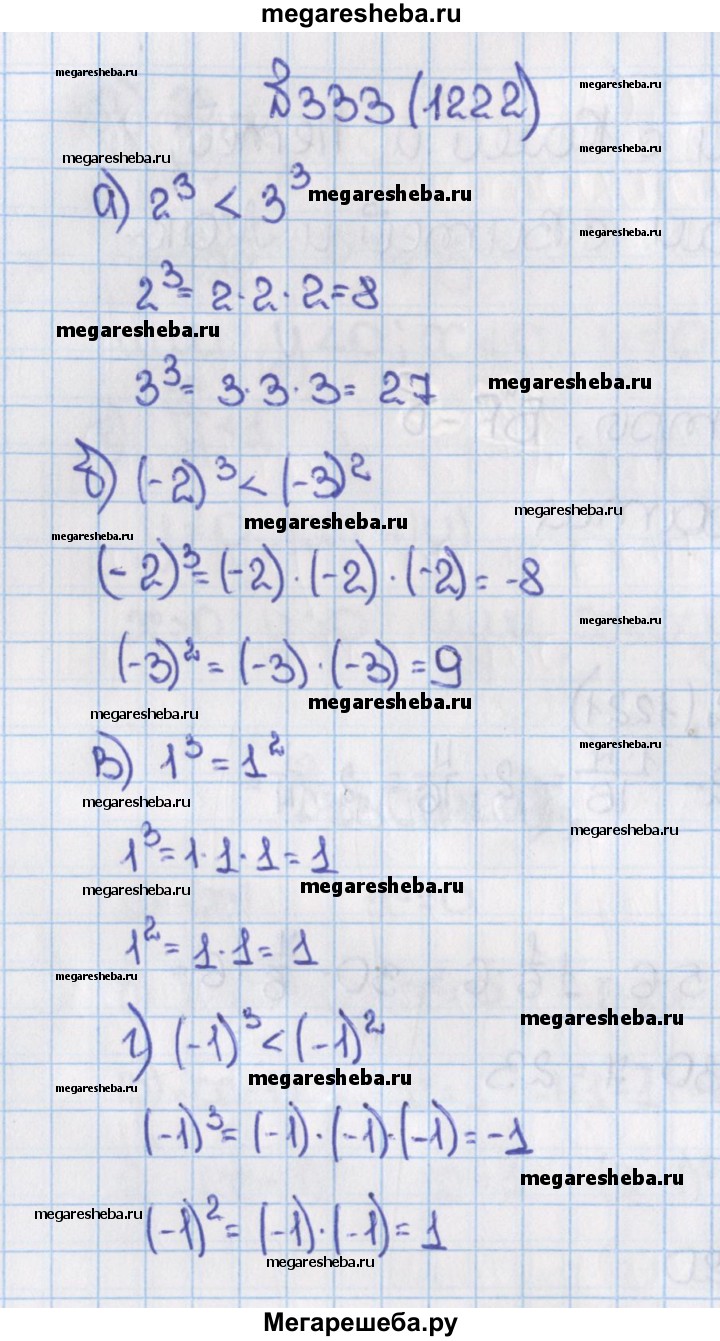 megaresheba.ru
megaresheba.ru
megaresheba.ru
В 333 (1222)
megaresheba.ru
megaresheba.ru
а) 2³ < 3³ megaresheba.ru
megaresheba.ru
2³ = 2 · 2 · 2 = 8
megaresheba.ru
3³ = 3 · 3 · 3 = 27 megaresheba.ru
б) (-2)³ < (-3)²
megaresheba.ru
megaresheba.ru
megaresheba.ru
(-2)³ = (-2) · (-2) · (-2) = -8
megaresheba.ru
(-3)² = (-3) · (-3) = 9
megaresheba.ru
megaresheba.ru
megaresheba.ru
в) 1³ = 1²
megaresheba.ru
megaresheba.ru
1³ = 1 · 1 · 1 = 1
megaresheba.ru
megaresheba.ru
1² = 1 · 1 = 1
megaresheba.ru
megaresheba.ru
г) (-1)³ < (-1)²
megaresheba.ru
megaresheba.ru
(-1)³ = (-1) · (-1) · (-1) = -1
megaresheba.ru
megaresheba.ru
(-1)² = (-1) · (-1) = 1
megaresheba.ru
Мегарешеба.ру